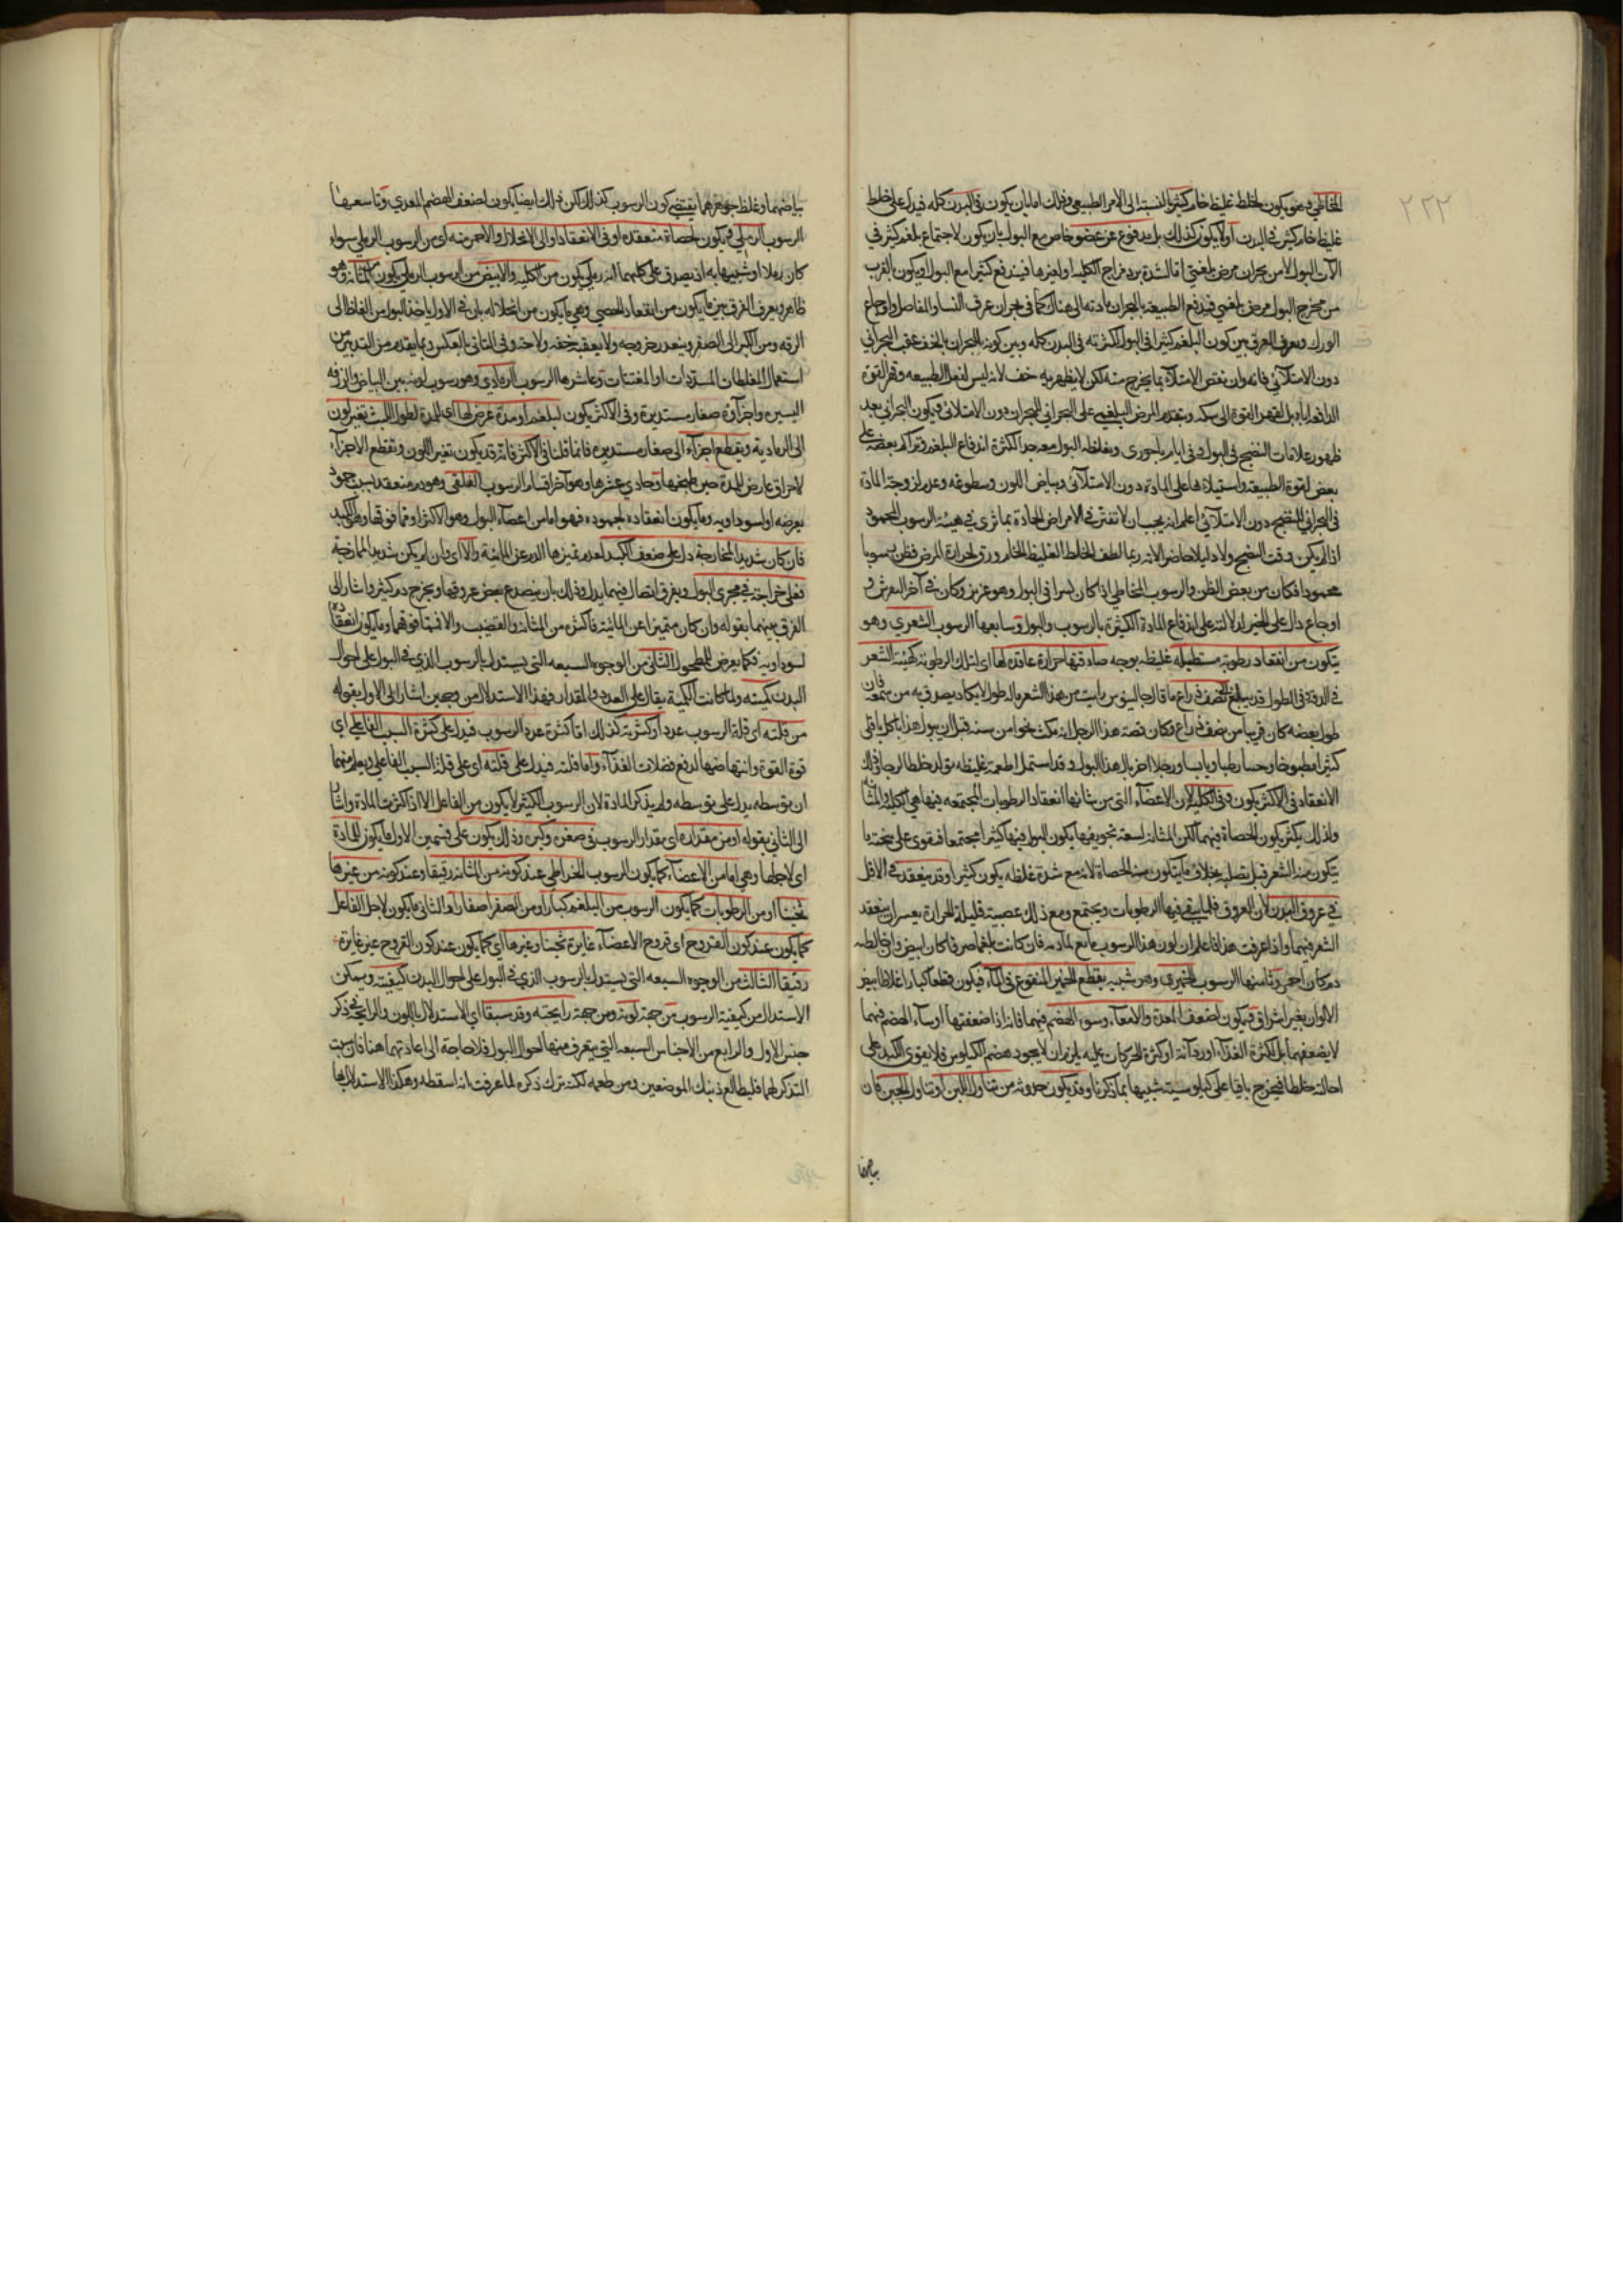 ٢٢٢
المخاطي وهو يكون لخلط غليظ خام كثير بالنسبة الى الامر الطبيعي وذلك اما بان يكون في البدن كله فيدل على خلط
غليظ خام كثير في البدن او لا يكون كذلك بل مدفوع عن عضو خاص مع البول بان يكون لاجتماع بلغم كثير في
الات البول لا من بحران مرض بلغمي اما لشدة برد مزاج الكلية او لغيرها فيندفع كثيرا مع البول او يكون بالقرب
من مخرج البول مرض بلغمي فيدفع الطبيعة بالبحران مادته الى هناك كما في بحران عرق النسا والمفاصل واوجاع
الورك ويعرف الفرق بين كون البلغم كثيرا في البول لكثرته في البدن كله وبين كونه بالبحران بالخف عقب البحراني
دون الامتلائي فانه وان نقص الامتلاء بما يخرج منه لكن لا يظهر به خف لانه ليس لفعل الطبيعة وقهر القوة
الدافعة اياه بل لقهر القوة الى سكه وبتقدم المرض البلغمي على البحراني للبحران دون الامتلائي فيكون البحراني بعد
ظهور علامات النضج في البول وفي ايام باحورى وبغلظه البول معه جدا لكثرة اندفاع البلغم وتراكم بعضه على
بعض لقوة الطبيعة واستيلائها على المادة دون الامتلائي وبياض اللون وسطوعه وعدم لزوجة المادة
في البحراني للنضج دون الامتلائي اعلم انه يجب ان لا تغتر في الامراض الحادة بما ترى في هيئة الرسوب المحمود
اذا لم يكن وقت النضج ولا دليلا حاضرا لانه ربما لطف الخلط الغليظ الخام ورق لحرارة المرض فظن رسوبا
محمودا فكان من بعض الظن والرسوب المخاطي اذا كان يسرا في البول وهو غزير وكان في آخر النقرس و
اوجاع دال على الخير لدلالته على اندفاع المادة الكثيرة بالرسوب والبول وسابعها الرسوب الشعري وهو
يتكون من انعقاد رطوبة مستطيله غليظه بوجه صادفتها حرارة عاقدة لها اى لتلك الرطوبة كهيئة الشعر
في الدقة وفي الطول قد يبلغ نصف ذراع ما قال جالينوس رايت من هذا الشعر ماله طول لا يكاد يصدق به من سمعه فان
طول بعضه كان قريبا من نصف ذراع وكان قصة هذا الرجل انه مكث نحوا من سنة قبل ان يبول هذا ياكل باقلى
كثيرا مطبوخا وحسا رطبا ويابسا ورجلا اخر بال هذا البول وقد استعمل اطعمة غليظة تولد خلطا الرجا في ذلك
الانعقاد في الاكثر يكون وفي الكلية لان الاعضاء التي من شانها انعقاد الرطوبات المجتمعه فيها هي الكلية والمثانة
ولذلك يكثر يكون الحصاة فيهما لكن المثانة لسعة تجويفها يكون البول فيها كثيرا مجتمعا فيقوى على
يتكون منه الشعر قبل تصلبه بخلاف ما يتكون منه الحصاة لانه مع شدة غلظه يكون كثيرا وقد ينعقد في الاقل
في عروق البدن لان العروق قلما يبقى فيها الرطوبات ويجتمع ومع ذلك عصبية قليلة الحرارة يعسر ان ينعقد
الشعر فيهما واذا عرفت هذا فاعلم ان لون هذا الرسوب تابع لمادته فان كانت بلغما صرفا كان ابيض وان خالطه
دم كان احمر وثامنها الرسوب الخميري وهو شبيه بقطع الخمير المنقوع في الماء فيكون قطعا كبارا غلاظا ابيض
الالوان بغير اشراق فيكون لضعف المعدة والامعاء وسوء الهضم فيهما فانه اذا ضعفتها اوساء الهضم فيهما
لا بضعفهما بل لكثرة الغذاء او رداءته او كثرة الحركات عليه يلزم ان لا يجود هضم الكيلوس فلا يقوى الكبد على
احالته خلطا فيخرج باقيا على كيلوسيته شبيها بما ذكرنا وقد يكون حدوثه من تناول اللبن او تناول الجبن فان
بياضهما
بياضهما وغلظ جوهرهما يقتضي كون الرسوب كذلك لكن ذلك ايضا يكون لضعف الهضم المعدي وتاسعها
الرسوب الرملي فيكون لحصاة منعقده او في الانعقاد او الى الانحلال والاحمر منه اى من الرسوب الرملي سواء
كان رملا او شبيها به اذ يصدق على كليهما انه رملي يكون من الكلية والابيض من الرسوب الرملي يكون من المثانة وهو
ظاهر ويعرف الفرق بين ما يكون من انعقاد الحصى وهي ما يكون من انحلاله بان في الاول ياخذ البول من الغلظ الى
الرقه ومن الكبر الى الصغر ويتعذر خروجه ولا يعقبه خفه ولا حه وفي الثاني بالعكس وبما يتقدم من التدبير من
استعمال المغلظات المسددات او المفتتات وعاشرها الرسوب الرمادي وهو رسوب لونه بين البياض والزرقه
اليسيرة واجزاؤه صغار مستديرة وفي الاكثر يكون لبلغم او مدة عرض لها اى للمدة لطول اللبث تغير لون
الى الرمادية وبقطع اجزاء الى صغار مستديره فانما قلنا في الاكثر فانه قد يكون تغير اللون وتقطع الاجزاء
لاحراق عارض للمدة حين طبخها وحادي عشرها وهو آخر اقسام الرسوب العلقي وهو دم منعقد بسبب جمود
يعرضه او لسوداويه وما يكون انعقاده لجموده فهو اما من اعضاء البول وهو الاكثر او مما فوقها وهي الكبد
فان كان شديد الممازجة دل على ضعف الكبد لعدم تميزها الدم عن المائية والا اى وان لم يكن شديد الممازجة
فعلى جراحة في مجرى البول وتفرق اتصال فيما يدل وذلك بان ينصدع بعض عروقها ويخرج دم كثير واشار الى
الفرق بينهما بقوله وان كان متميزا عن المائية فاكثره من المثانة والقضيب والا فمما فوقهما وما يكون انعقاده
لسوداويه فكما يعرض للمطحول الثاني من الوجوه السبعه التي يستدل بالرسوب الذي في البول على احوال
البدن كميته ولما كانت الكمية يقال على العدد والمقدار فهذا الاستدلال من وجهين اشار الى الاول بقوله
من قلته اى قلة الرسوب عددا وكثرته كذلك اما كثرة عدد الرسوب فيدل على كثرة السبب الفاعلي اى
قوة القوة وانتهاضها لدفع فضلات الغذاء واما قلته فيدل على قلته اى على قلة السبب الفاعلي ويعلم منهما
ان توسطه يدل على توسطه ولم يذكر المادة لان الرسوب الكثير لا يكون من الفاعل الا اذا كثرت المادة واشار
الى الثاني بقوله او من مقداره اى مقدار الرسوب في صغره وكبره وذلك يكون على قسمين الاول ما يكون للمادة
اى لاجلها وهي اما من الاعضاء كما يكون الرسوب الخراطي عند كونه من المثانة رقيقا وعند كونه من غيرها
ثخينا او من الرطوبات كما يكون الرسوب من البلغم كبارا ومن الصفرا صغارا والثاني ما يكون لاجل الفاعل
كما يكون عند كون القروح اى قروح الاعضاء غايرة ثخينا وغيرها اى كما يكون عند كون القروح غير غايرة
رقيقا الثالث من الوجوه السبعه التي يستدل بالرسوب الذي في البول على احوال البدن كيفيته ويمكن
الاستدلال من كيفية الرسوب من جهة لونه ومن جهة رايحته وقد سبقا اى الاستدلال باللون والرايحة في ذكر
جنس الاول والرابع من الاجناس السبعه التي يتعرف منها احوال البول فلا حاجة الى اعادتهما هنا فان نسيت
التذكر لهما فليطالع ذينك الموضعين ومن طعمه لكنه ترك ذكره لما عرفت انه اسقطه وهكذا الاستدلال بها